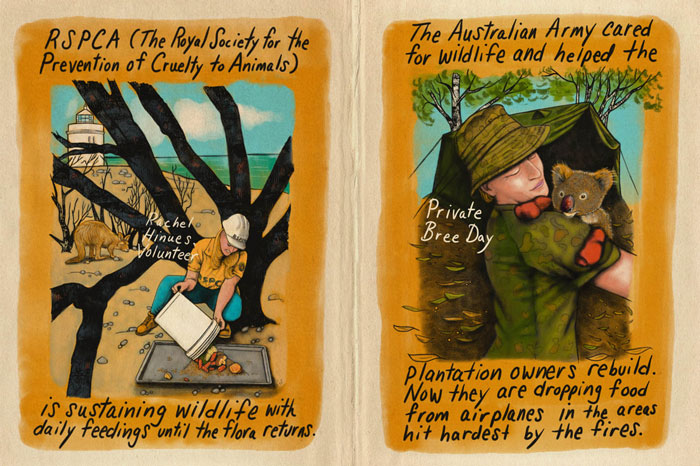 RSPCA (The Royal Society for the
Prevention of Cruelty to Animals)
Rachel
Hinues
Volunteer
is sustaining wildlife with
daily feedings until the flora returns.
The Australian Army cared
for wildlife and helped the
Private
Bree Day
plantation owners rebuild.
Now they are dropping food
from airplanes in the areas
hit hardest by the fires.